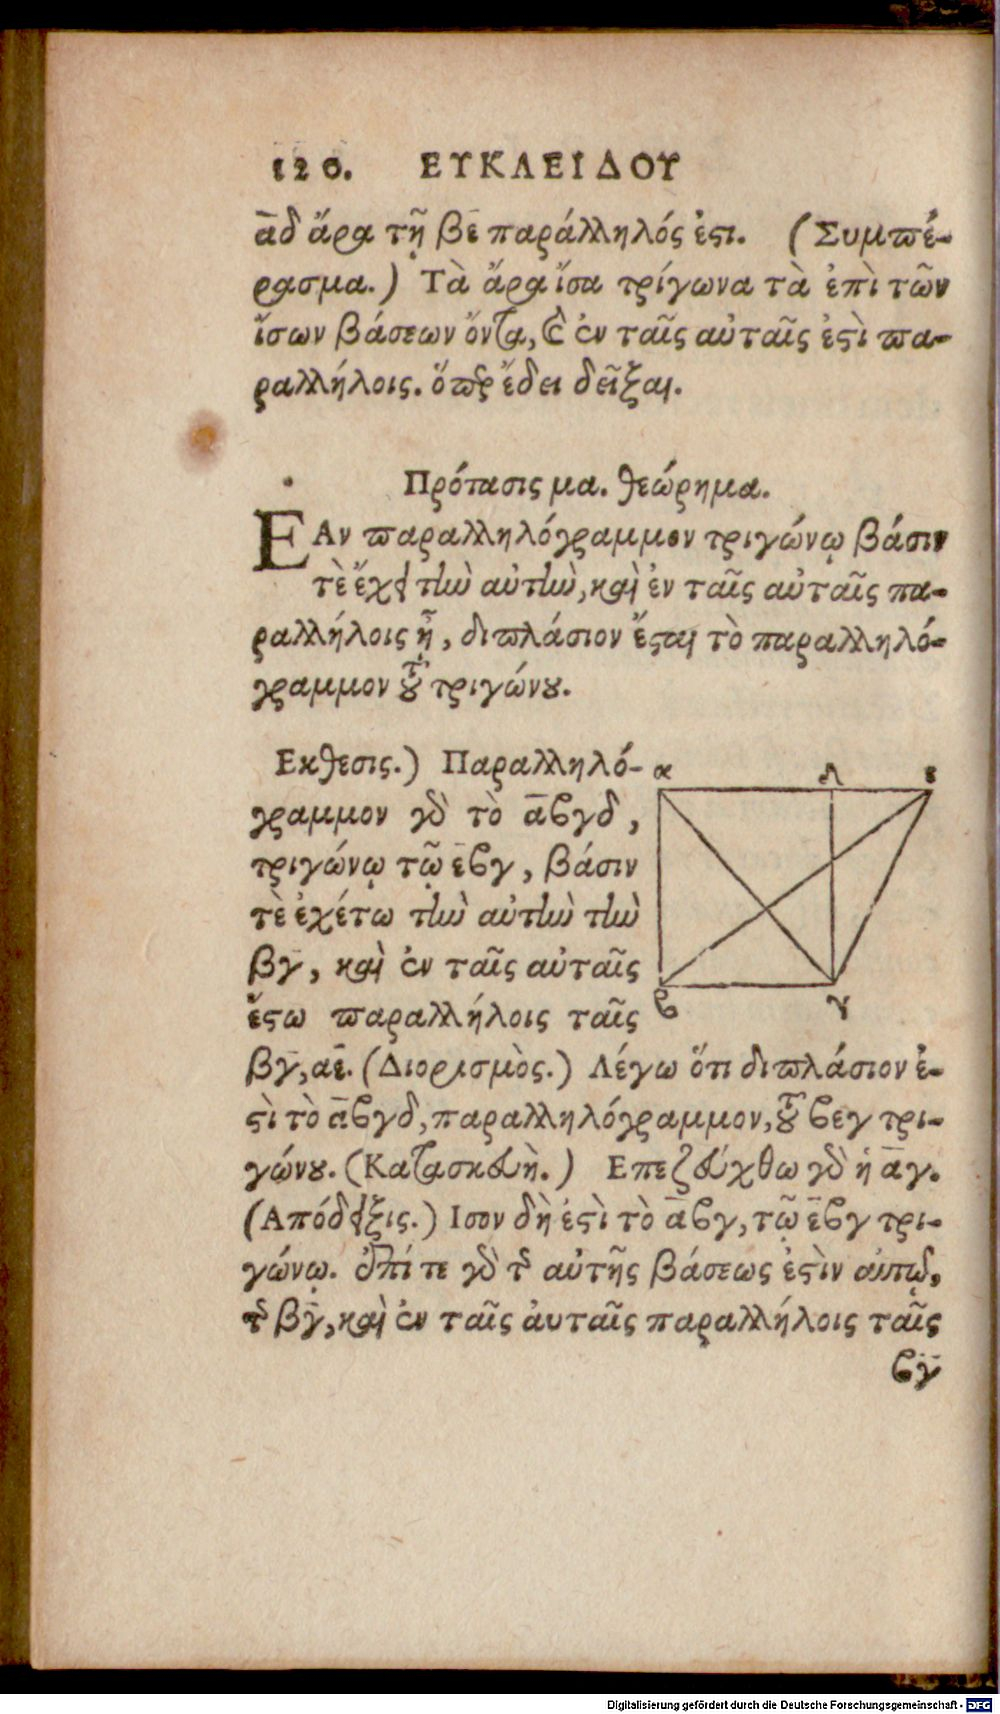 120. ΕΥΚΛΕΙΔΟΥ
α̅δ ἄρα τῇ βε̅ παράλληλός ἐϛι. (Συμπέ-
ρασμα.) Τὰ ἄρα ἴσα τρίγωνα τὰ ἐπὶ τῶν
ἴσων βάσεων ὄντα, ϗ ἐν ταῖς αὐταῖς ἐϛὶ πα-
ραλλήλοις. ὅπερ ἔδει δεῖξαι.
Πρότασις μα. θεώρημα.
ΕΑν παραλληλόγραμμον τριγώνῳ βάσιν
τὲ ἔχει τὴν αὐτὴν, καὶ ἐν ταῖς αὐταῖς πα-
ραλλήλοις ᾖ, διπλάσιον ἔϛαι τὸ παραλληλό-
γραμμον τȣ͂ τριγώνȣ.
Εκθεσις.) Παραλληλό-
γραμμον γὰρ τὸ α̅ϐγδ,
τριγώνῳ τῷ ε̅ϐγ, βάσιν
τὲ ἐχέτω τὴν αὐτὴν τὴν
βγ̅, καὶ ἐν ταῖς αὐταῖς
ἔϛω παραλλήλοις ταῖς
βγ̅, αε̅. (Διορισμὸς.) Λέγω ὅτι διπλάσιον ἐ-
ϛὶ τὸ α̅ϐγδ, παραλληλόγραμμον, τȣ͂ ϐεγ τρι-
γώνȣ. (Κατασκευὴ.) Επεζεύχθω γὰρ ἡ α̅γ.
(Απόδειξις.) Ισον δὴ ἐϛὶ τὸ α̅ϐγ, τῷ ε̅ϐγ τρι-
γώνῳ. ἐπί τε γὰρ τῆς αὐτῆς βάσεως ἐϛὶν αὐτῷ,
τῆς βγ̅, καὶ ἐν ταῖς ἀυταῖς παραλλήλοις ταῖς
ϐγ̅
α δ ε
ϐ γ
Digitalisierung gefördert durch die Deutsche Forschungsgemeinschaft - DFG